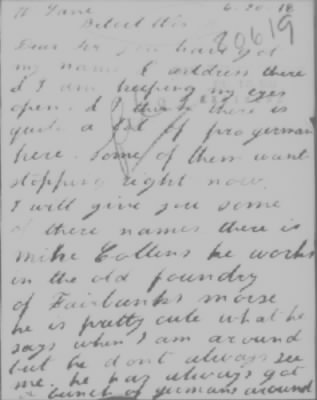 W Lane 6-20-18
Beloit Wis
20619
Dear Sir you have got
my name & address there
& I am keeping my eyes
open. & I think there is
quite a lot of pro german
here. some of them want
stopping right now.
I will give you some
of there names there is
mike Collins he works
in the old foundry
of Fairbanks morse
he is pretty cute what he
says when I am around
but he dont always see
me. he has always got
a bunch of germans around